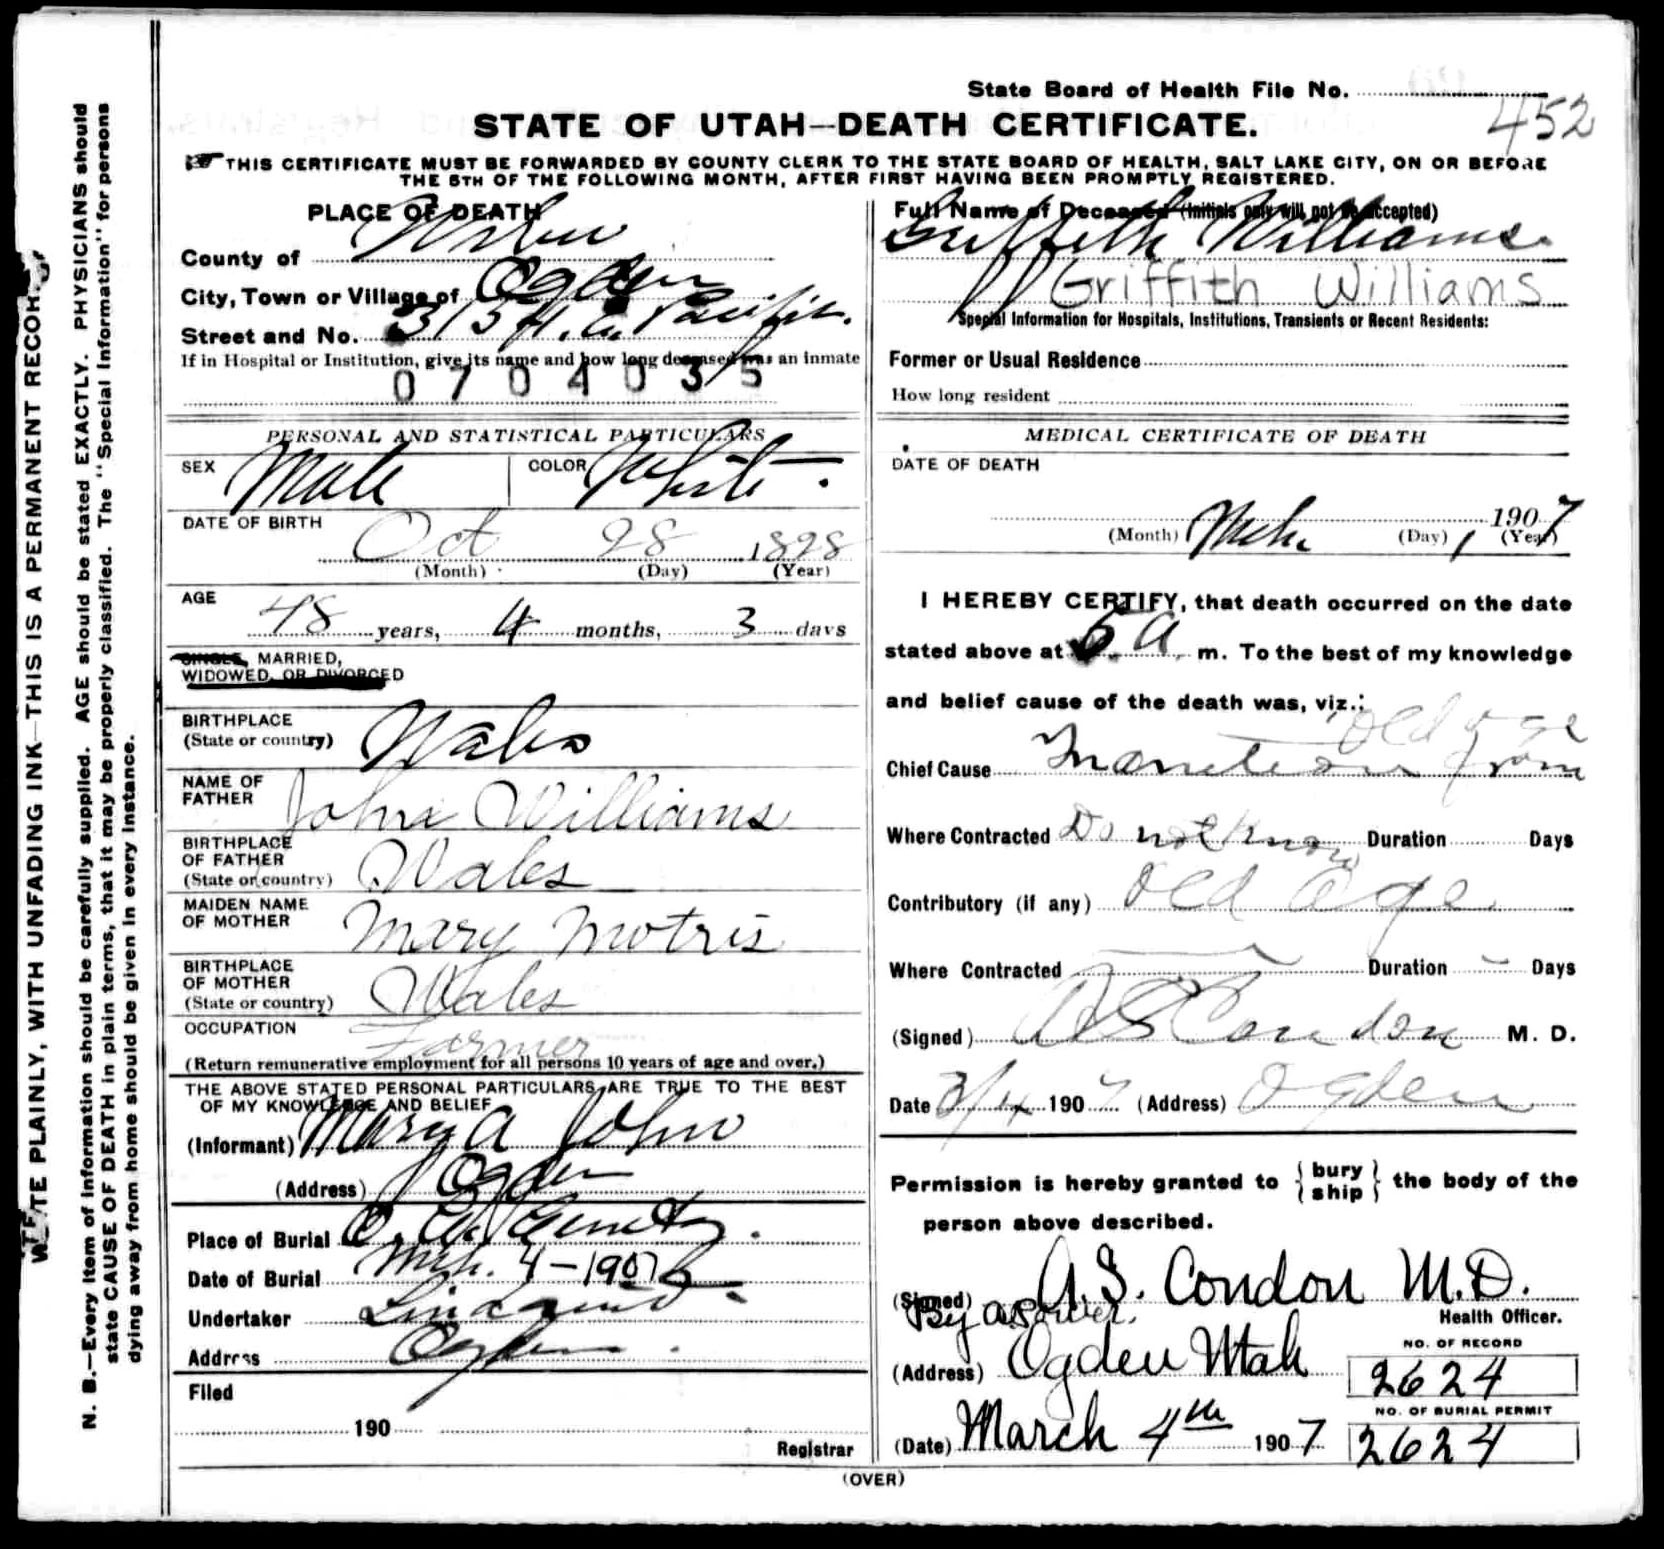 State Board of Health File No.
452
STATE OF UTAH—DEATH CERTIFICATE.
THIS CERTIFICATE MUST BE FORWARDED BY COUNTY CLERK TO THE STATE BOARD OF HEALTH, SALT LAKE CITY, ON OR BEFORE
THE 5TH OF THE FOLLOWING MONTH, AFTER FIRST HAVING BEEN PROMPTLY REGISTERED.
WRITE PLAINLY, WITH UNFADING INK—THIS IS A PERMANENT RECORD
N. B.—Every item of information should be carefully supplied. AGE should be stated EXACTLY. PHYSICIANS should
state CAUSE OF DEATH in plain terms, that it may be properly classified. The "Special Information" for persons
dying away from home should be given in every instance.
PLACE OF DEATH
County of Weber
City, Town or Village of Ogden
Street and No. 315
If in Hospital or Institution, give its name and how long deceased was an inmate
0704035
PERSONAL AND STATISTICAL PARTICULARS
SEX Male COLOR White
DATE OF BIRTH
Oct 28 1828
(Month) (Day) (Year)
AGE
48 years, 4 months, 3 days
SINGLE, MARRIED,
WIDOWED, OR DIVORCED
BIRTHPLACE
(State or country) Wales
NAME OF
FATHER John Williams
BIRTHPLACE
OF FATHER
(State or country) Wales
MAIDEN NAME
OF MOTHER Mary Motris
BIRTHPLACE
OF MOTHER
(State or country) Wales
OCCUPATION
Farmer
(Return remunerative employment for all persons 10 years of age and over.)
THE ABOVE STATED PERSONAL PARTICULARS ARE TRUE TO THE BEST
OF MY KNOWLEDGE AND BELIEF
(Informant) Mary A John
(Address) Ogden
Place of Burial
Date of Burial Mch. 4-1907
Undertaker Lindquist
Address Ogden
Filed
190
Registrar
Full Name of Deceased (Initials only will not be accepted)
Griffith Williams
Griffith Williams
Special Information for Hospitals, Institutions, Transients or Recent Residents:
Former or Usual Residence
How long resident
MEDICAL CERTIFICATE OF DEATH
DATE OF DEATH
Mch. 1 1907
(Month) (Day) (Year)
I HEREBY CERTIFY, that death occurred on the date
stated above at 5 A. m. To the best of my knowledge
and belief cause of the death was, viz.:
old age
Chief Cause Inanition from
Where Contracted Do not know Duration Days
Contributory (if any) Old Age
Where Contracted Duration Days
(Signed) A S Condon M. D.
Date 3/4 1907 (Address) Ogden
Permission is hereby granted to { bury ship } the body of the
person above described.
(Signed) A. S. Condon M.D.
By
Health Officer.
(Address) Ogden Utah
NO. OF RECORD
2624
NO. OF BURIAL PERMIT
2624
(Date) March 4th 1907
(OVER)